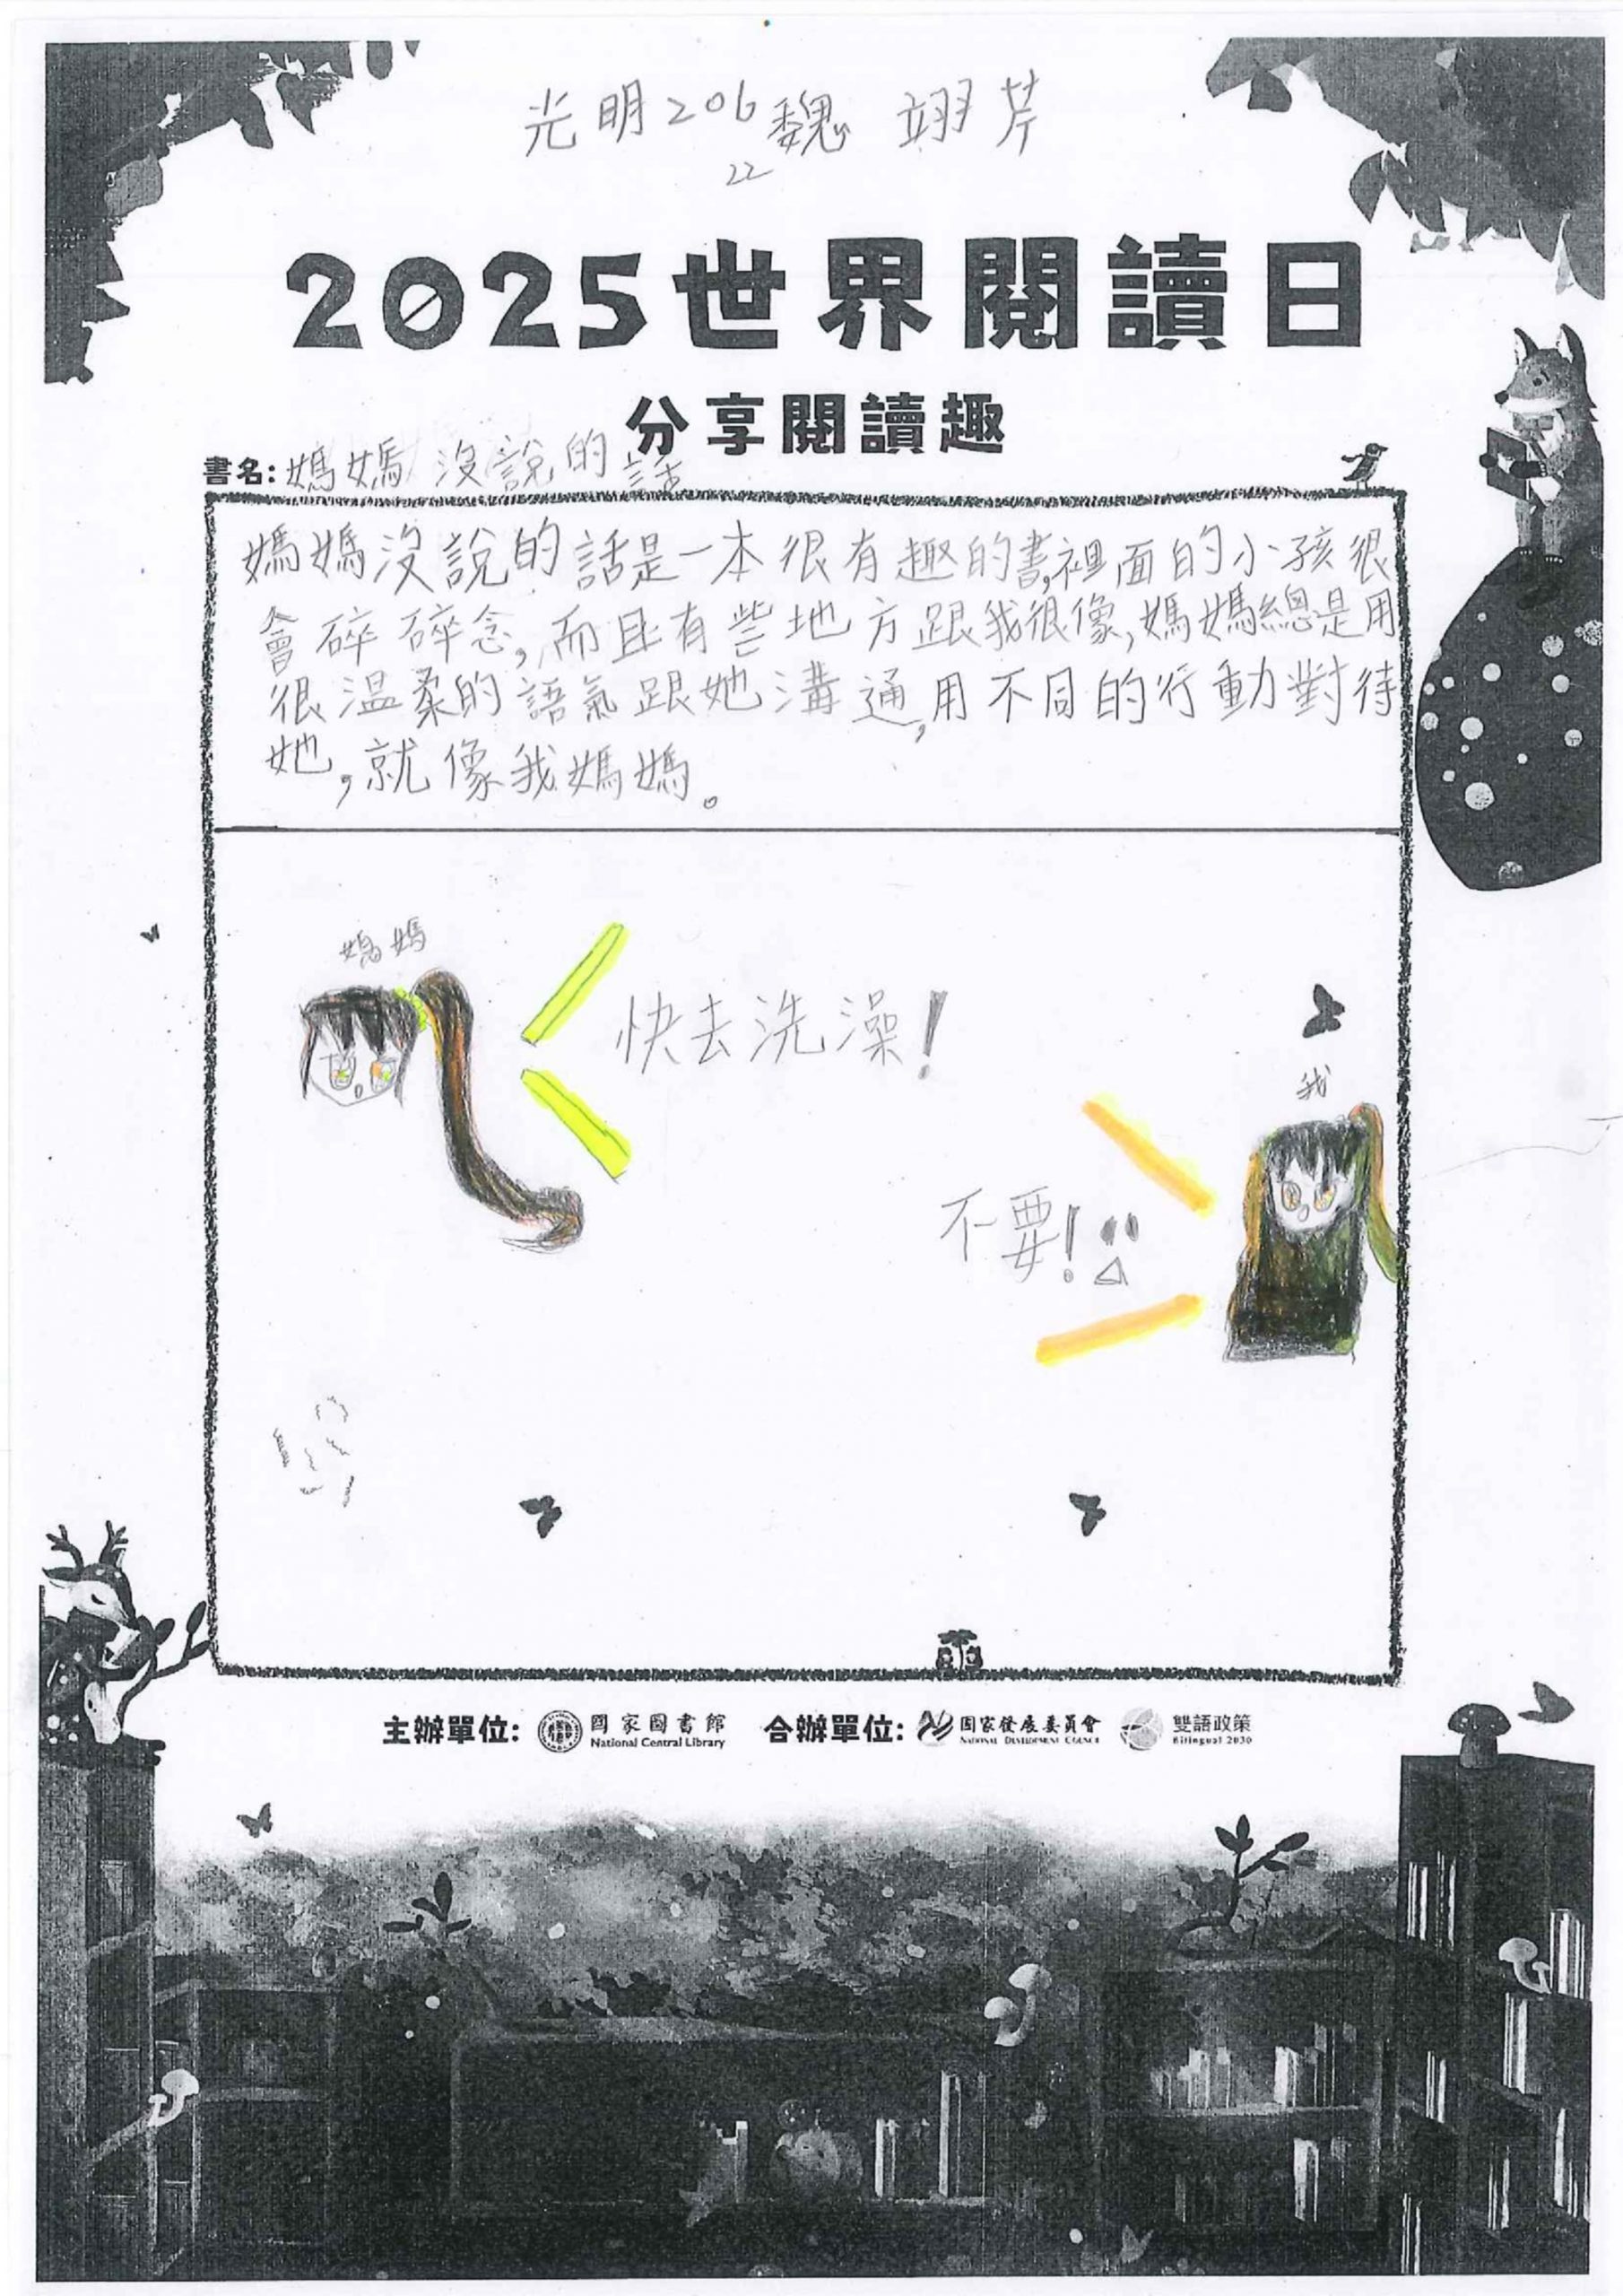 光明206魏翊芹
22
2025世界閱讀日
分享閱讀趣
書名:媽媽沒說的話
媽媽沒說的話是一本很有趣的書,裡面的小孩很
會碎碎念,而且有些地方跟我很像,媽媽總是用
很溫柔的語氣跟她溝通,用不同的行動對待
她,就像我媽媽。
媽媽
快去洗澡!
我
不要!
主辦單位: 國家圖書館 合辦單位: 國家發展委員會 雙語政策
National Central Library NATIONAL DEVELOPMENT COUNCIL Bilingual 2030